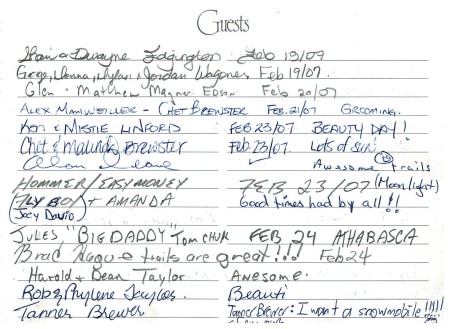 Guests
& Dwayne Edgington Feb 19/07
Donna, Jordan Wagoner Feb 19/07.
Glen - Matthew Magner Edson Feb 20/07
ALEX MANWEILLER - CHET BREWSTER FEB. 21/07 GROOMING.
KEN & MISTIE LINFORD FEB 23/07 BEAUTY DAY!
Chet & Malinda BREWSTER Feb 23/07 Lots of sun
Awesome trails
HOMMER/EASYMONEY FEB 23/07 (Moon light)
FLY BOY + AMANDA Good times had by all!!
Joey David
JULES "BIG DADDY" TOM CHUK FEB 24 ATHABASCA
Brad Hague trails are great!!! Feb 24
Harold + Dean Taylor Awesome.
Rob & Phylene Beauti
Tanner Brewer Tanner Brewer: I want a snowmobile!!!!!